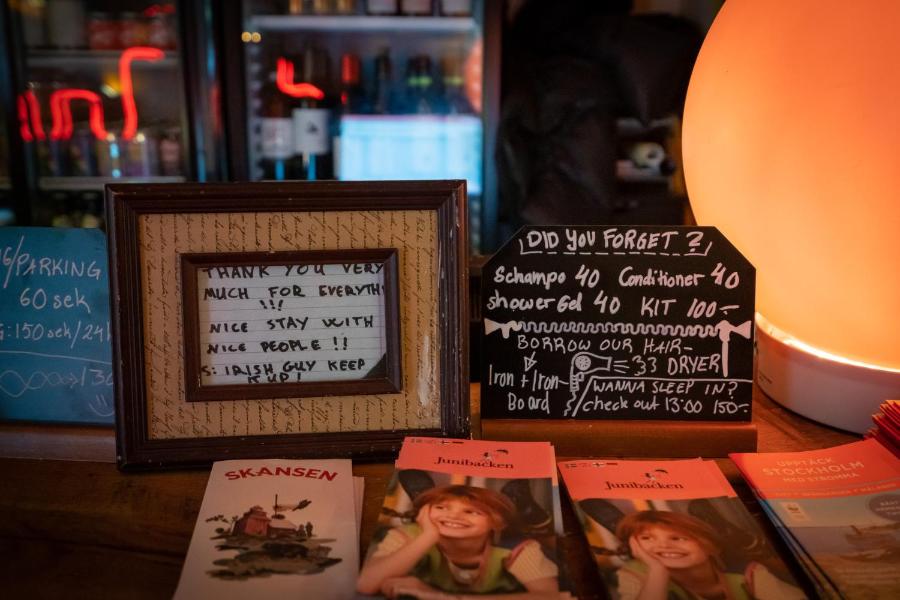 PARKING
60 sek
150sek/24h
THANK YOU VERY
MUCH FOR EVERYTH
!!!
NICE STAY WITH
NICE PEOPLE !!
S: IRISH GUY KEEP
UP!
DID YOU FORGET ?
Schampo 40 Conditioner 40
showerGel 40 KIT 100:-
BORROW OUR HAIR-
DRYER
Iron + Iron
Board
WANNA SLEEP IN?
check out 13:00 150:-
SKANSEN
Junibacken
Junibacken
UPPTÄCK
STOCKHOLM
MED STROMMA